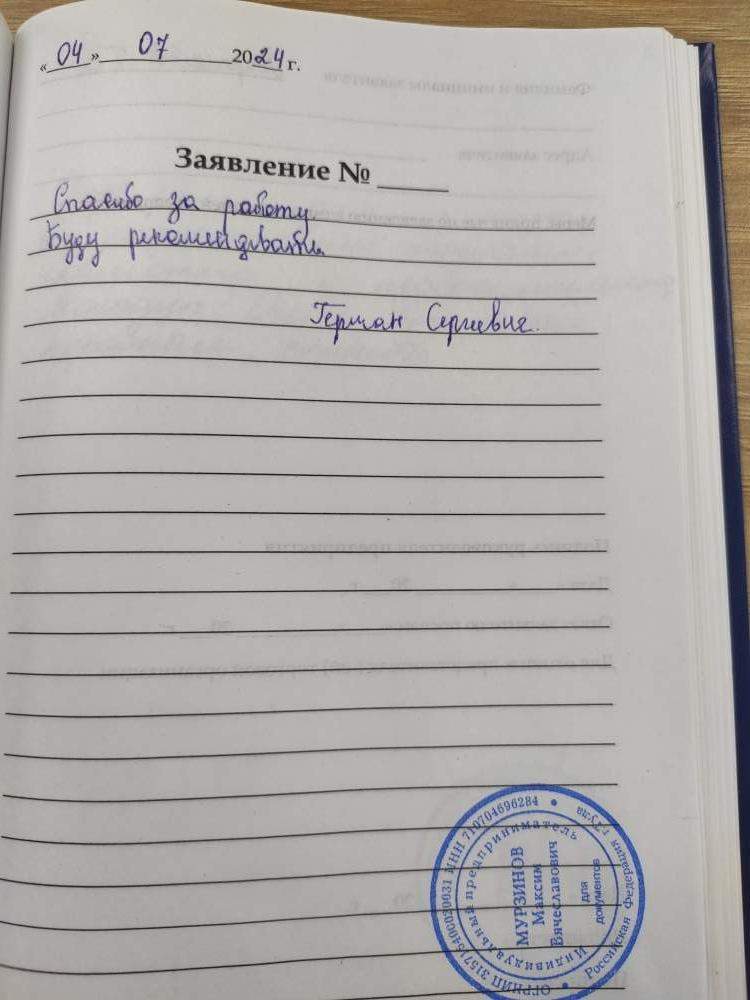 «04» 07 2024 г.
Заявление № ____
Спасибо за работу
Буду рекомендовать.
Герман Сергеевич.
Индивидуальный предприниматель
МУРЗИНОВ
Максим
Вячеславович
для
документов
Российская Федерация г.Тула
ОГРНИП 315715400020031 ИНН 710704696284